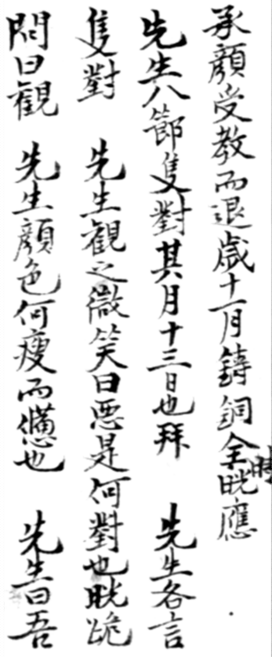 承顔受教而退歳十一月鋳銅全時晄應
先生八節隻對其月十三日也拜　先生各言
隻對　先生観之微笑曰悪是何對也晄跪
問曰観　先生顔色何痩而憊也　先生曰吾